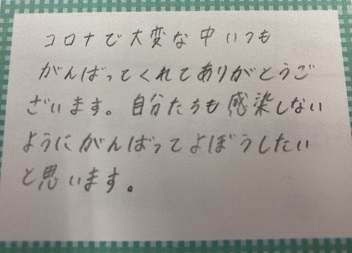 コロナで大変な中いつも
がんばってくれてありがとうご
ざいます。自分たちも感染しない
ようにがんばってよぼうしたい
と思います。